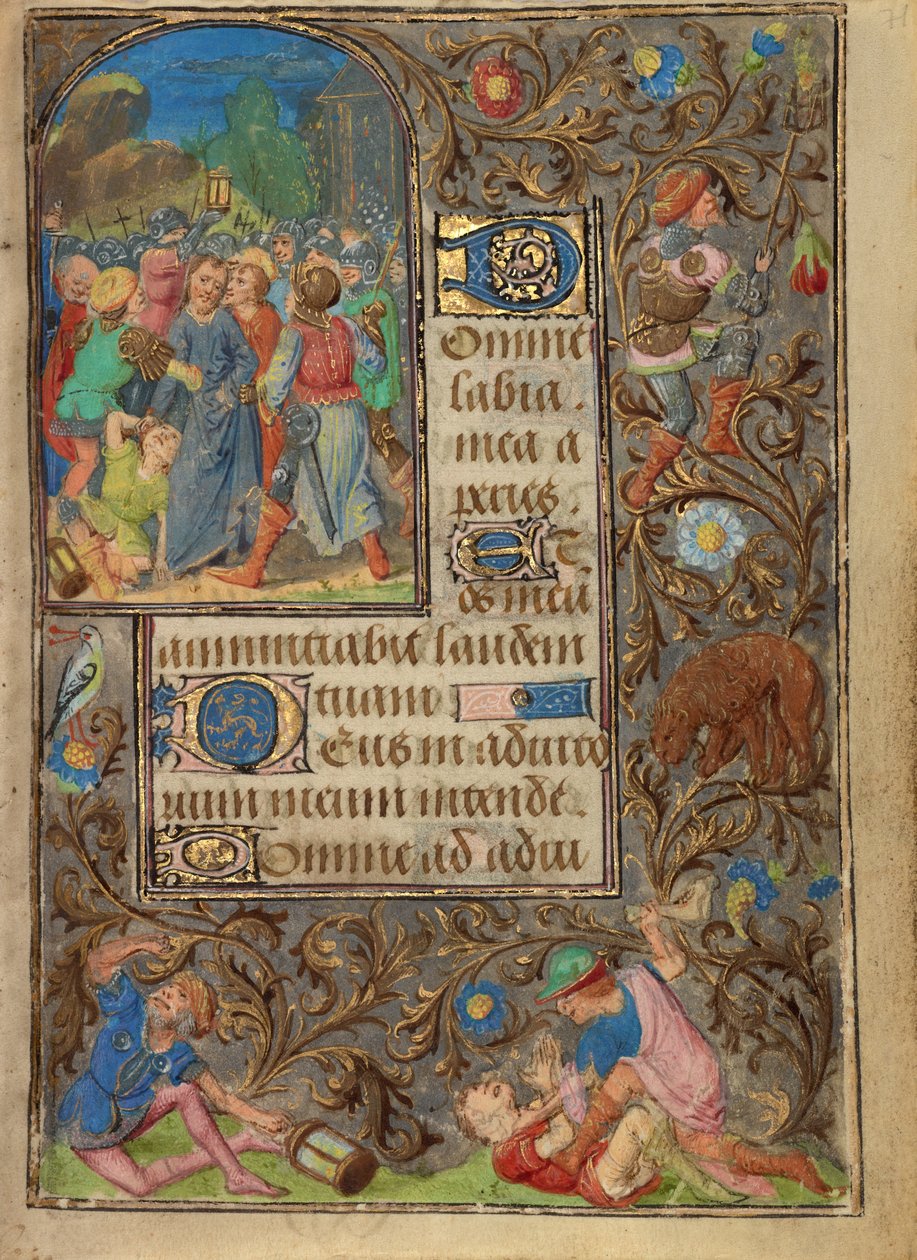 71
Domine
labia.
mea a
peries.
Et
os meū
annuntiabit laudem
tuam
Deus in adiuto
rium meum intende.
Domine ad adiu